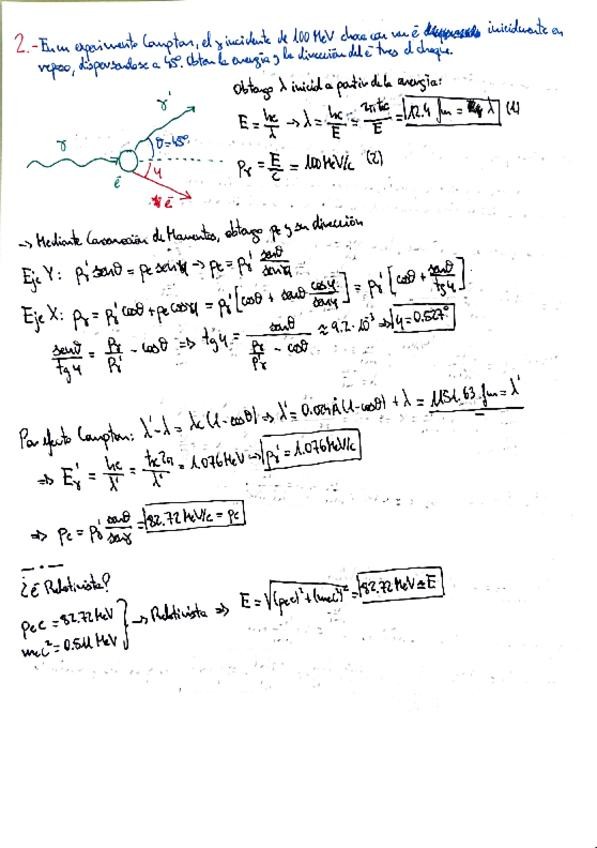 2.- En un experimento Compton, el γ incidente de 100 MeV choca con un e⁻ inicialmente en
reposo, dispersandose a 45º. Obten la energía y la dirección del e⁻ tras el choque.
Obtengo λ inicial a partir de la energía:
γ'
E = hc/λ → λ = hc/E = 2πħc/E = 12.4 fm = λ (1)
γ
θ=45º
φ
e⁻
e⁻
Pγ = E/c = 100 MeV/c (2)
→ Mediante Conservación de Momentos, obtengo pe y su dirección
Eje Y: pγ' senθ = pe senφ → pe = pγ' senθ/senφ
Eje X: pγ = pγ' cosθ + pe cosφ = pγ' [cosθ + senθ cosφ/senφ] = pγ' [cosθ + senθ/tgφ]
senθ/tgφ = pγ/pγ' - cosθ ⇒ tgφ = senθ/(pγ/pγ' - cosθ) ≈ 9.2·10⁻³ ⇒ φ = 0.527º
Por efecto Compton: λ'-λ = λc (1-cosθ) ⇒ λ' = 0.024Å (1-cosθ) + λ = 1151.63 fm = λ'
⇒ Eγ' = hc/λ' = ħc2π/λ' = 1.076 MeV → pγ' = 1.076 MeV/c
⇒ pe = pγ' senθ/senφ = 82.72 MeV/c = pe
¿e⁻ Relativista?
pe c = 82.72 MeV
me c² = 0.511 MeV
→ Relativista ⇒ E = √((pe c)² + (me c²)²) = 82.72 MeV ≃ E